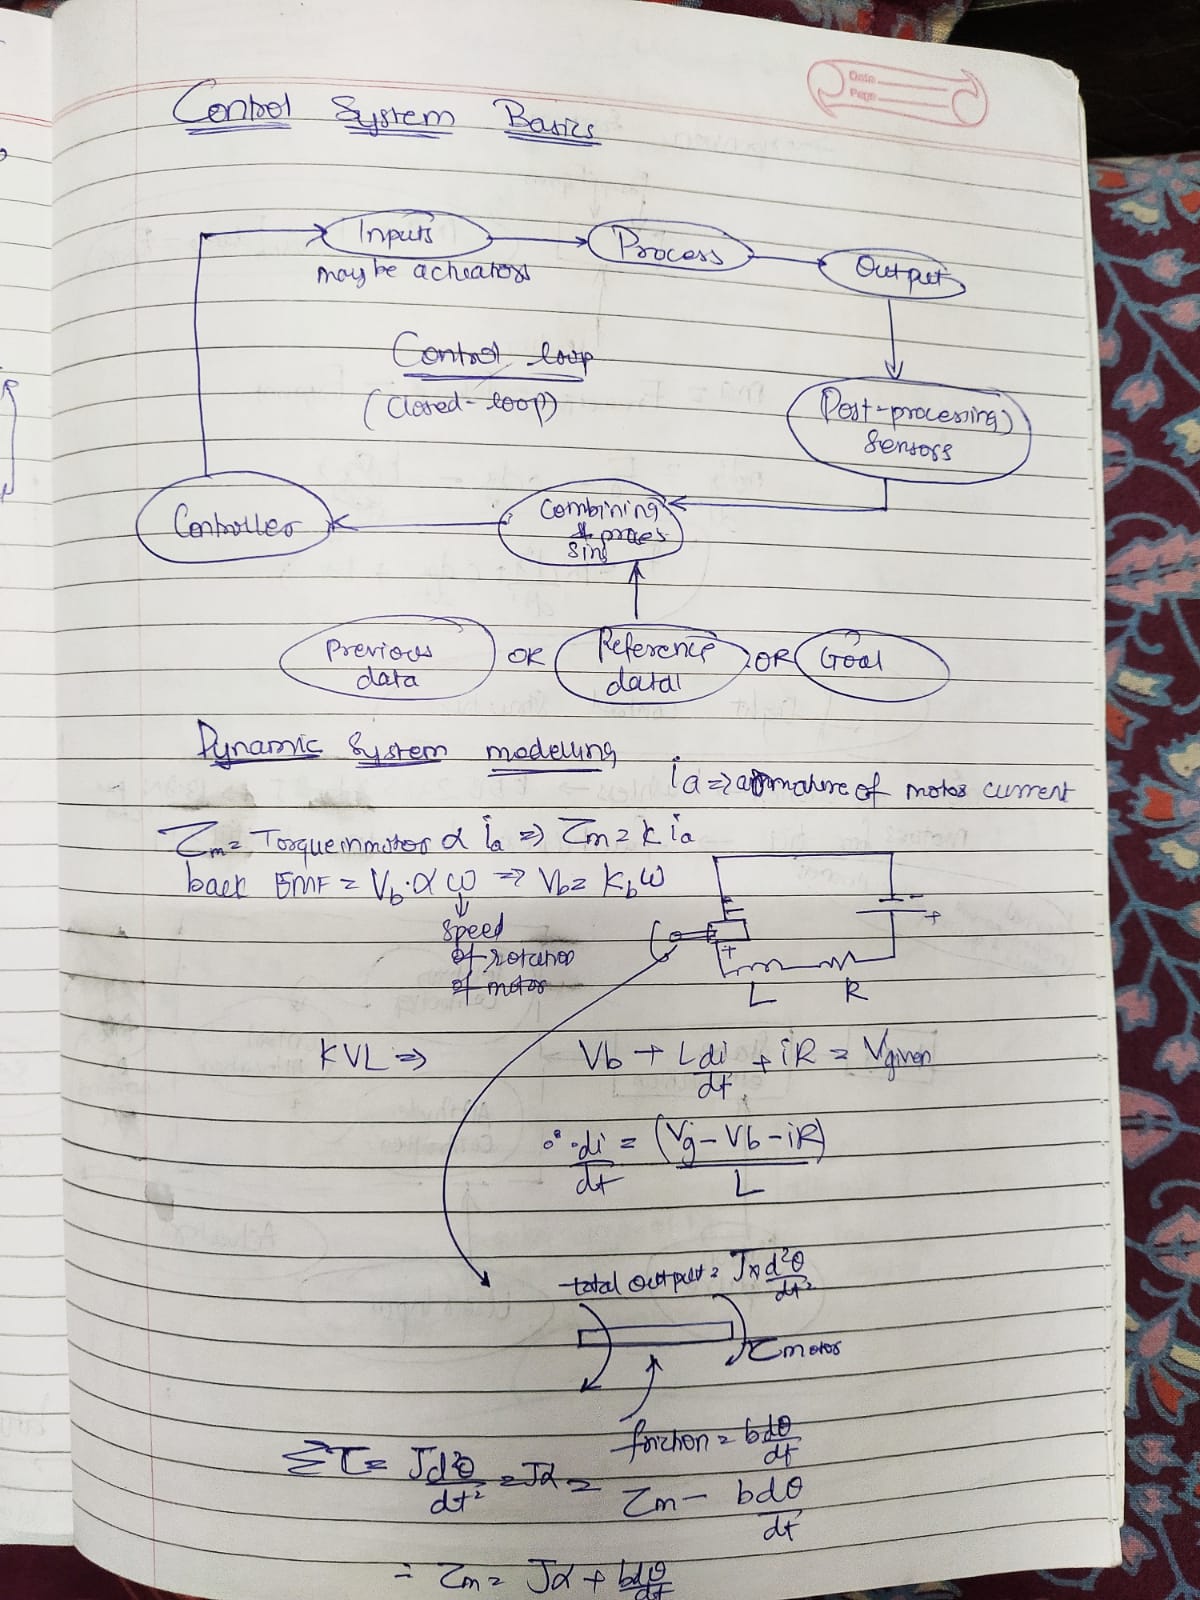 Date
Page
Control System Basics
Inputs
Process
Output
may be actuators
Control loop
(Closed-loop)
Post-processing
sensors
Combining
& proces
sing
Controller
Previous
data
OR
Reference
data
OR
Goal
Dynamic System modelling
ia => armature of motor current
τm = Torque in motor α ia => τm = k ia
back EMF = Vb α ω => Vb = Kb ω
speed
of rotation
of motor
+
-
+
L
R
KVL => Vb + L di/dt + iR = Vgiven
∴ di/dt = (Vg - Vb - iR)/L
total output = J x d²θ/dt²
τmotor
friction = b dθ/dt
Στ = J d²θ/dt² = Jα = τm - b dθ/dt
= τm = Jα + b dθ/dt